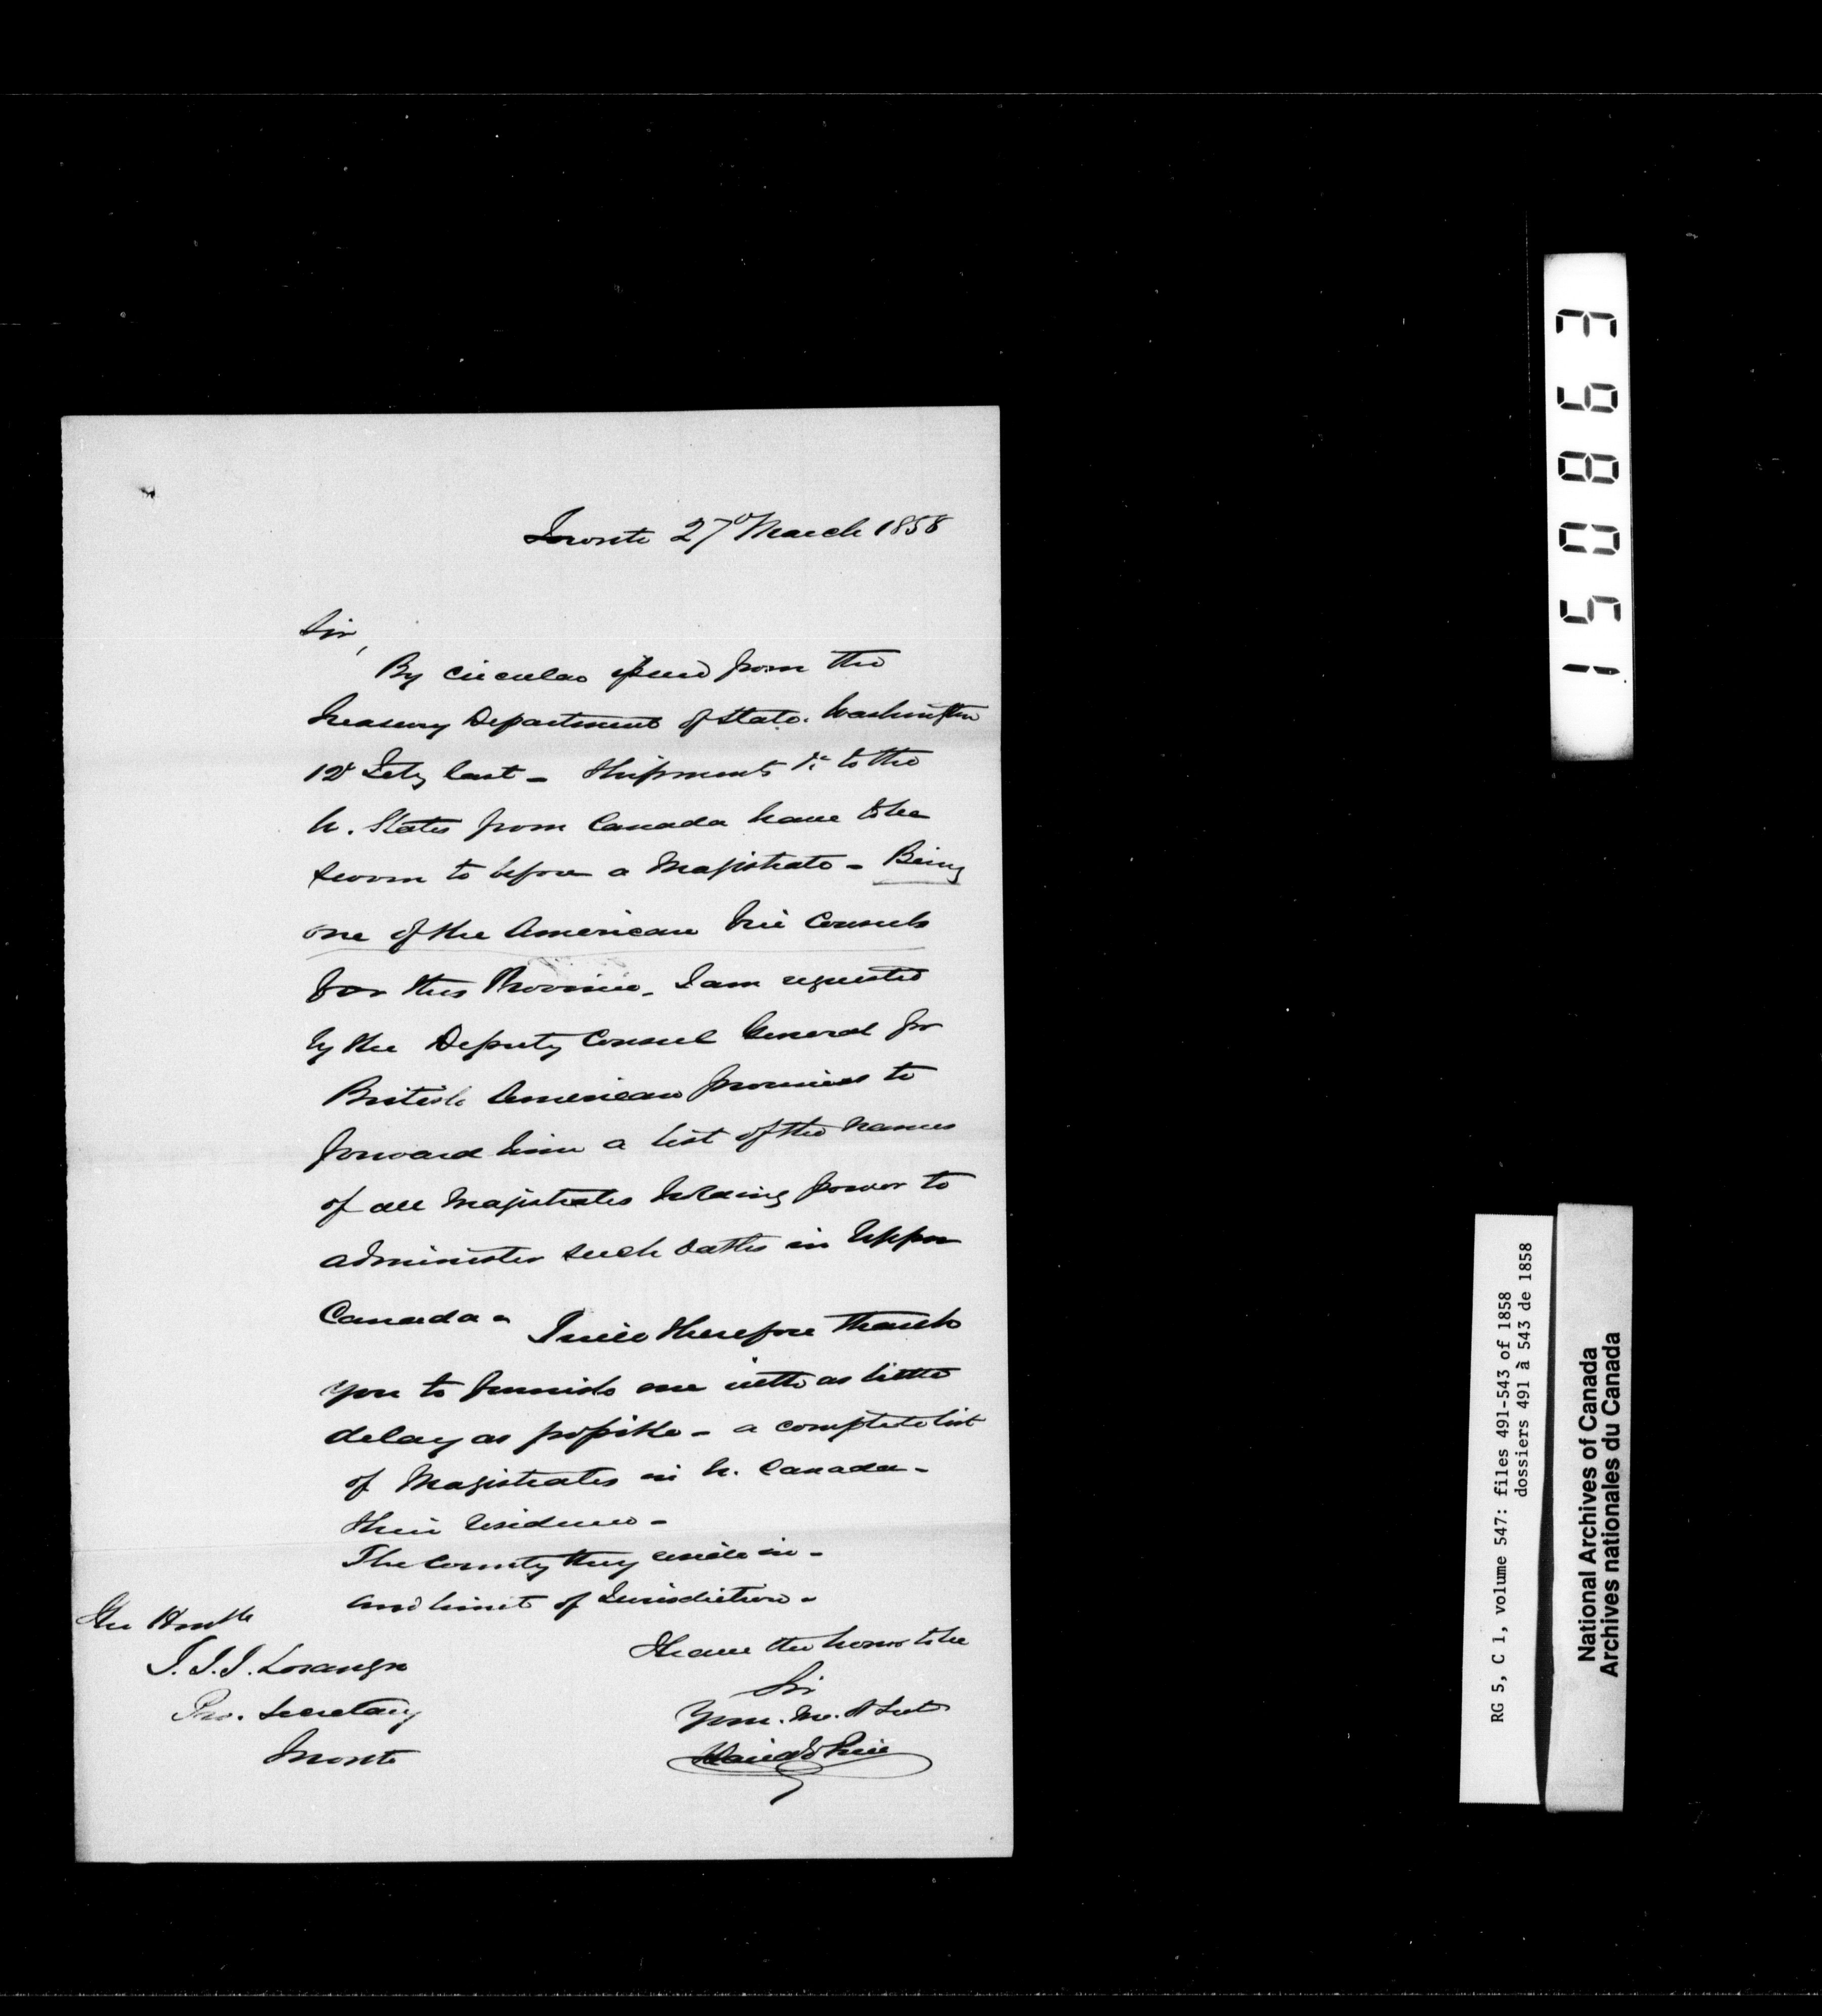 Toronto 27 March 1858
Sir,
By circular issued from the
Treasury Department of State. Washington
12 Feby last - Shipments &c to the
U. States from Canada have to be
sworn to before a Magistrate - Being
one of the American Vice Consuls
for this Province. I am requested
by the Deputy Consul General for
British American provinces to
forward him a list of the names
of all Magistrates holding power to
administer such oaths in Upper
Canada - I will therefore thank
you to furnish me with as little
delay as possible - a complete list
of Magistrates in U. Canada -
their residence -
The County they reside in -
and limit of Jurisdiction -
I have the honor to be
Sir
Your. Mo. O Sert
The Honble
T. J. J. Loranger
Pro. Secretary
Toronto
150863
RG 5, C 1, volume 547: files 491-543 of 1858
dossiers 491 à 543 de 1858
National Archives of Canada
Archives nationales du Canada